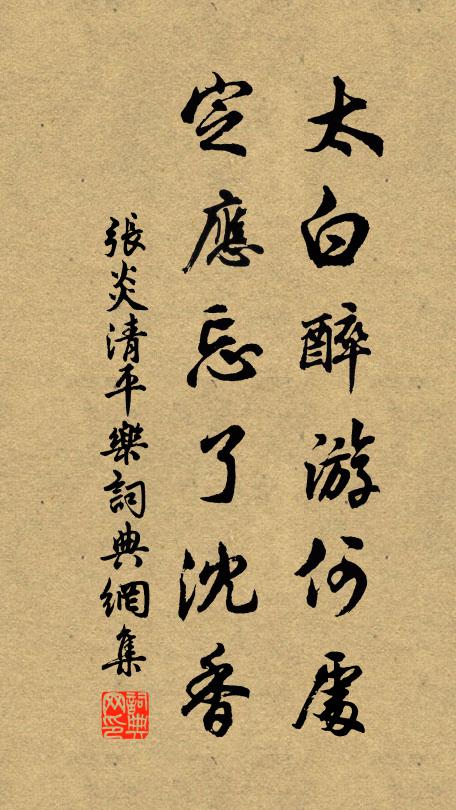 太白醉游何處
定應忘了沈香
張炎清平樂詞典網集
詞典
网印